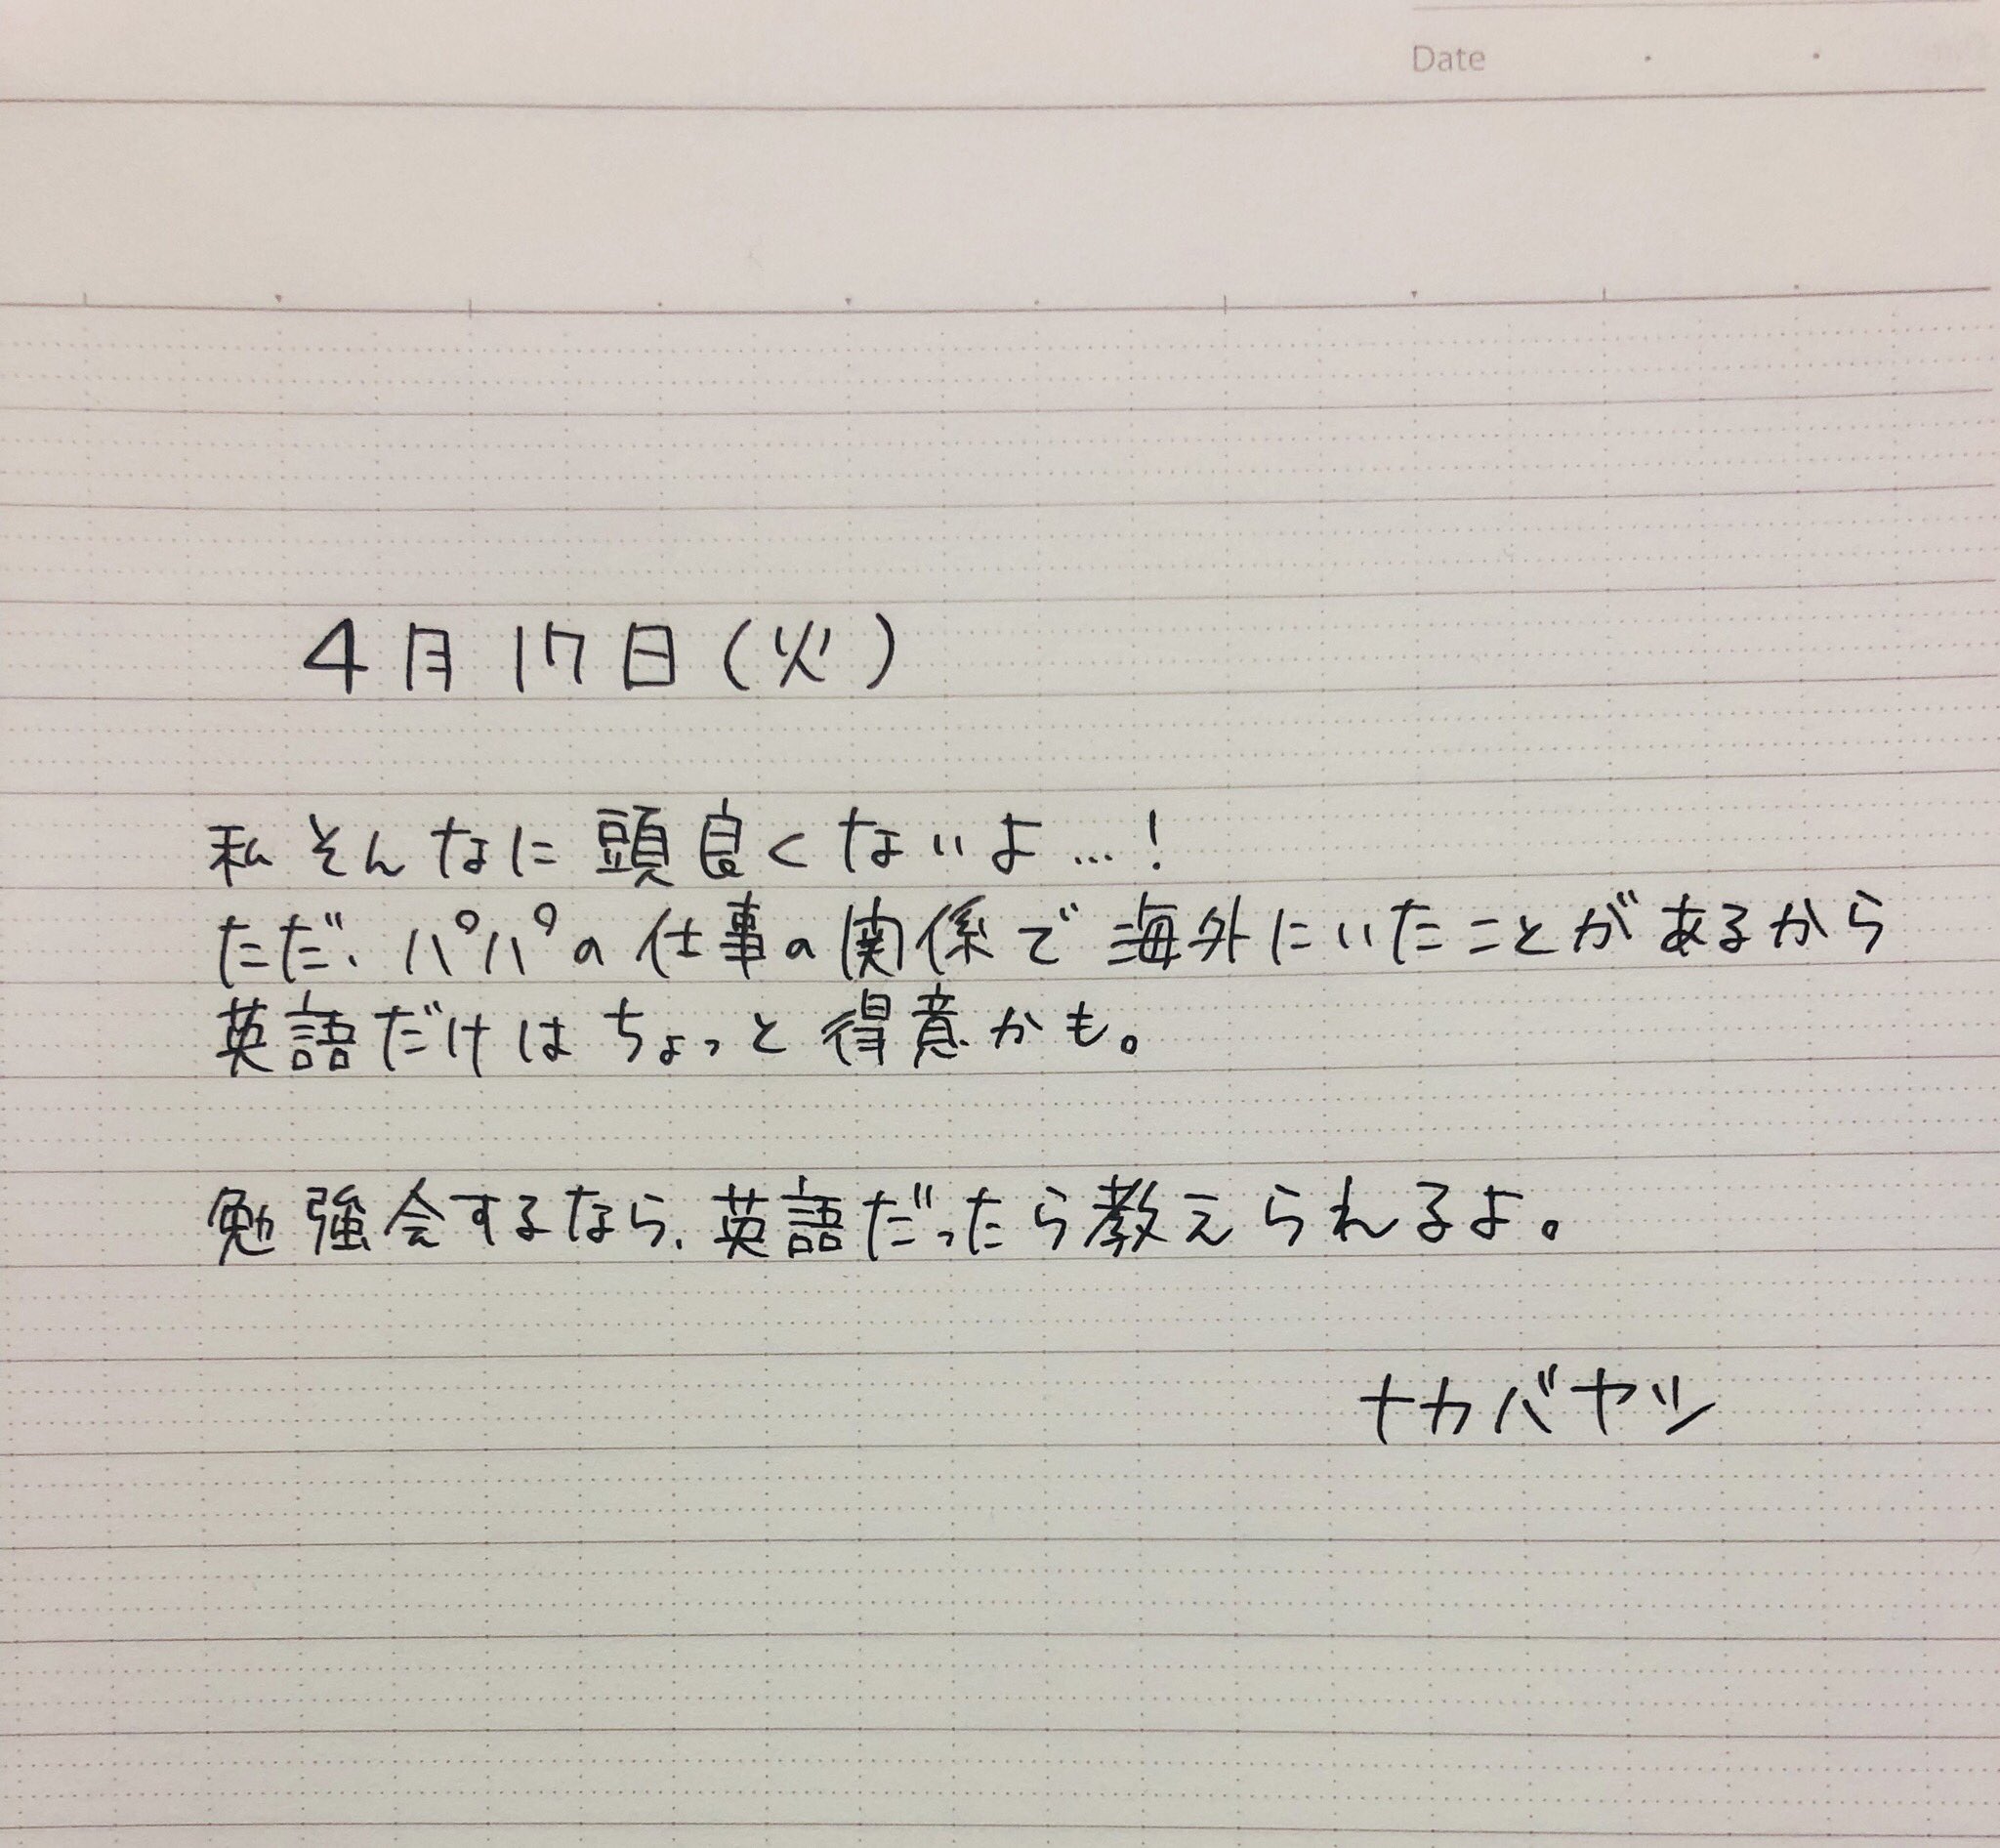 Date
4月17日(火)
私そんなに頭良くないよ…!
ただ、パパの仕事の関係で海外にいたことがあるから
英語だけはちょっと得意かも。
勉強会するなら、英語だったら教えられるよ。
ナカバヤシ